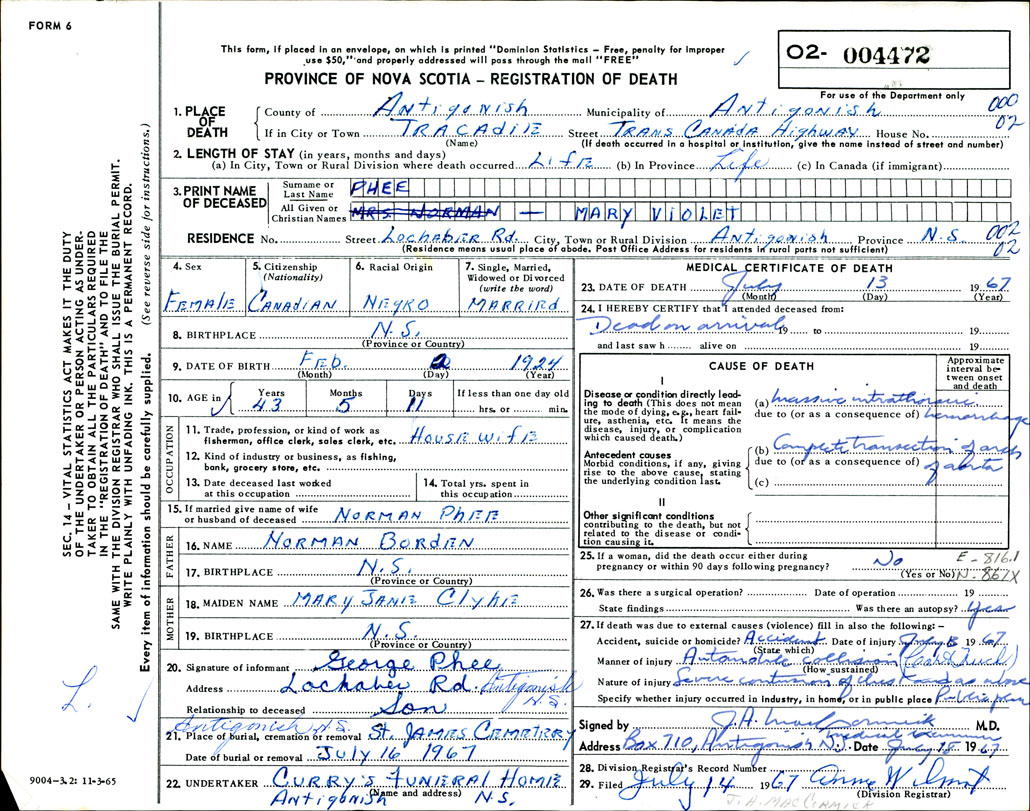 FORM 6
This form, if placed in an envelope, on which is printed "Dominion Statistics – Free, penalty for improper
use $50," and properly addressed will pass through the mail "FREE"
PROVINCE OF NOVA SCOTIA – REGISTRATION OF DEATH
02- 004472
For use of the Department only
000
02
1. PLACE OF DEATH
County of Antigonish Municipality of Antigonish
If in City or Town TRACADIE Street TRANS CANADA Highway House No.
(Name) (If death occurred in a hospital or institution, give the name instead of street and number)
2. LENGTH OF STAY (in years, months and days)
(a) In City, Town or Rural Division where death occurred LIFE (b) In Province Life (c) In Canada (if immigrant)
3. PRINT NAME OF DECEASED
Surname or Last Name PHEE
All Given or Christian Names MRS NORMAN — MARY VIOLET
RESIDENCE No. Street Lochaber Rd. City, Town or Rural Division Antigonish Province N.S.
002
02
(Residence means usual place of abode. Post Office Address for residents in rural parts not sufficient)
4. Sex
FEMALE
5. Citizenship
(Nationality)
CANADIAN
6. Racial Origin
NEGRO
7. Single, Married,
Widowed or Divorced
(write the word)
MARRIED
8. BIRTHPLACE N.S.
(Province or Country)
9. DATE OF BIRTH FEB. 2 1924
(Month) (Day) (Year)
10. AGE in Years Months Days If less than one day old
43 5 11 hrs. or min.
OCCUPATION
11. Trade, profession, or kind of work as
fisherman, office clerk, sales clerk, etc. HOUSE WIFE
12. Kind of industry or business, as fishing,
bank, grocery store, etc.
13. Date deceased last worked
at this occupation
14. Total yrs. spent in
this occupation
15. If married give name of wife
or husband of deceased NORMAN PHEE
FATHER
16. NAME NORMAN BORDEN
17. BIRTHPLACE N.S.
(Province or Country)
MOTHER
18. MAIDEN NAME MARY JANE Clyke
19. BIRTHPLACE N.S.
(Province or Country)
20. Signature of informant George Phee
Address Lochaber Rd. Antigonish
N.S.
Relationship to deceased Son
Antigonish N.S.
21. Place of burial, cremation or removal St. James Cemetery
Date of burial or removal July 16 1967
22. UNDERTAKER CURRY'S FUNERAL HOME
(Name and address)
Antigonish N.S.
MEDICAL CERTIFICATE OF DEATH
23. DATE OF DEATH July 13 1967
(Month) (Day) (Year)
24. I HEREBY CERTIFY that I attended deceased from:
Dead on arrival 19 to 19
and last saw h alive on 19
CAUSE OF DEATH
Approximate
interval be-
tween onset
and death
I
Disease or condition directly lead-
ing to death (This does not mean
the mode of dying, e.g., heart fail-
ure, asthenia, etc. It means the
disease, injury, or complication
which caused death.)
(a) massive intrathoracic
due to (or as a consequence of) hemorrhage
Antecedent causes
Morbid conditions, if any, giving
rise to the above cause, stating
the underlying condition last.
(b) Complete transection of arch
due to (or as a consequence of) of aorta
(c)
II
Other significant conditions
contributing to the death, but not
related to the disease or condi-
tion causing it.
25. If a woman, did the death occur either during
pregnancy or within 90 days following pregnancy? No
(Yes or No)
E-816.1
N-861X
26. Was there a surgical operation? Date of operation 19
State findings Was there an autopsy? Yes
27. If death was due to external causes (violence) fill in also the following: –
Accident, suicide or homicide? Accident Date of injury July 13 1967
(State which)
Manner of injury Automobile collision (Car & Truck)
(How sustained)
Nature of injury Severe contusion of chest and as above
Specify whether injury occurred in industry, in home, or in public place Public place
Signed by J.A. MacCormick M.D.
Medical Examiner
Address Box 710, Antigonish N.S. Date July 18 1967
28. Division Registrar's Record Number
29. Filed July 14 1967 Anne
(Division Registrar)
J.A. MACCORMICK
SEC. 14 – VITAL STATISTICS ACT MAKES IT THE DUTY
OF THE UNDERTAKER OR PERSON ACTING AS UNDER-
TAKER TO OBTAIN ALL THE PARTICULARS REQUIRED
IN THE "REGISTRATION OF DEATH" AND TO FILE THE
SAME WITH THE DIVISION REGISTRAR WHO SHALL ISSUE THE BURIAL PERMIT.
WRITE PLAINLY WITH UNFADING INK. THIS IS A PERMANENT RECORD.
Every item of information should be carefully supplied. (See reverse side for instructions.)
L.
9004-3.2: 11-3-65